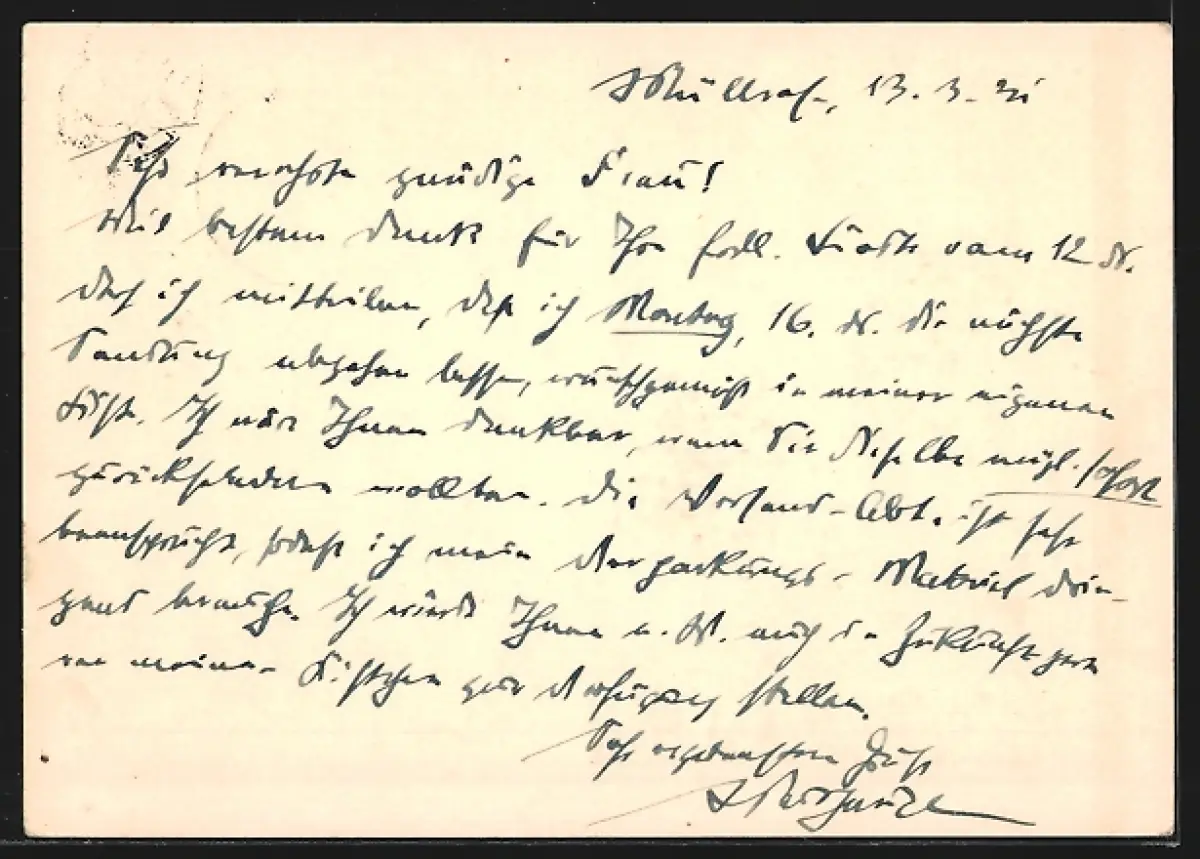 Müllrose, 13. 3.
Sehr verehrte gnädige Frau!
Mit bestem Dank für Ihre frdl. Karte vom 12. ds.
darf ich mitteilen, daß ich Montag, 16. ds. die nächste
Sendung abgehen lasse, wunschgemäß in meiner eigenen
Kiste. Ich wäre Ihnen dankbar, wenn Sie dieselbe mögl. sofort
zurücksenden wollten. Die Versand-Abt. ist sehr
beansprucht, sodaß ich mein Verpackungs-Material drin-
gend brauche. Ich würde Ihnen auch in Zukunft gern
meine Kistchen zur Verfügung stellen.
Sehr ergebensten Gruß